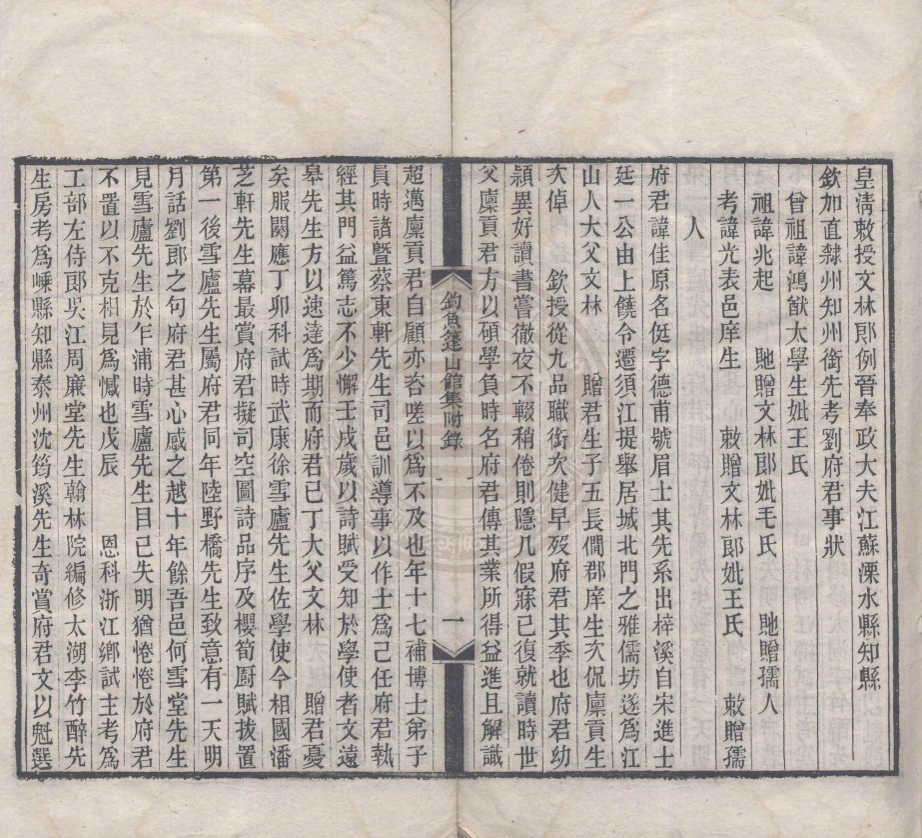 皇清敕授文林郎例晉奉政大夫江蘇溧水縣知縣
欽加直隸州知州銜先考劉府君事狀
曾祖諱鴻猷太學生妣王氏
祖諱兆起 馳贈文林郎妣毛氏 馳贈孺人
考諱光表邑庠生 敕贈文林郎妣王氏 敕贈孺
人
府君諱佳原名侹字德甫號眉士其先系出梓溪自宋進士
廷一公由上饒令遷須江堤舉居城北門之雅儒坊遂爲江
山人大父文林 贈君生子五長僩郡庠生次侃廩貢生
次倬 欽授從九品職銜次健早歿府君其季也府君幼
頴異好讀書嘗徹夜不輟稍倦則隱几假寐已復就讀時世
父廩貢君方以碩學負時名府君傳其業所得益進且解識
釣魚篷山館集附錄
一
超邁廩貢君自顧亦咨嗟以爲不及也年十七補博士弟子
員時諸暨蔡東軒先生司邑訓導事以作士爲己任府君執
經其門益篤志不少懈壬戌歲以詩賦受知於學使者文遠
皋先生方以速達爲期而府君已丁大父文林 贈君憂
矣服闋應丁卯科試時武康徐雪廬先生佐學使今相國潘
芝軒先生幕最賞府君擬司空圖詩品序及櫻筍厨賦拔置
第一後雪廬先生屬府君同年陸野橋先生致意有一天明
月話劉郎之句府君甚心感之越十年餘吾邑何雪堂先生
見雪廬先生於乍浦時雪廬先生目已失明猶惓惓於府君
不置以不克相見爲憾也戊辰 恩科浙江鄉試主考爲
工部左侍郎吳江周廉堂先生翰林院編修太湖李竹醉先
生房考爲嵊縣知縣泰州沈筠溪先生奇賞府君文以魁選